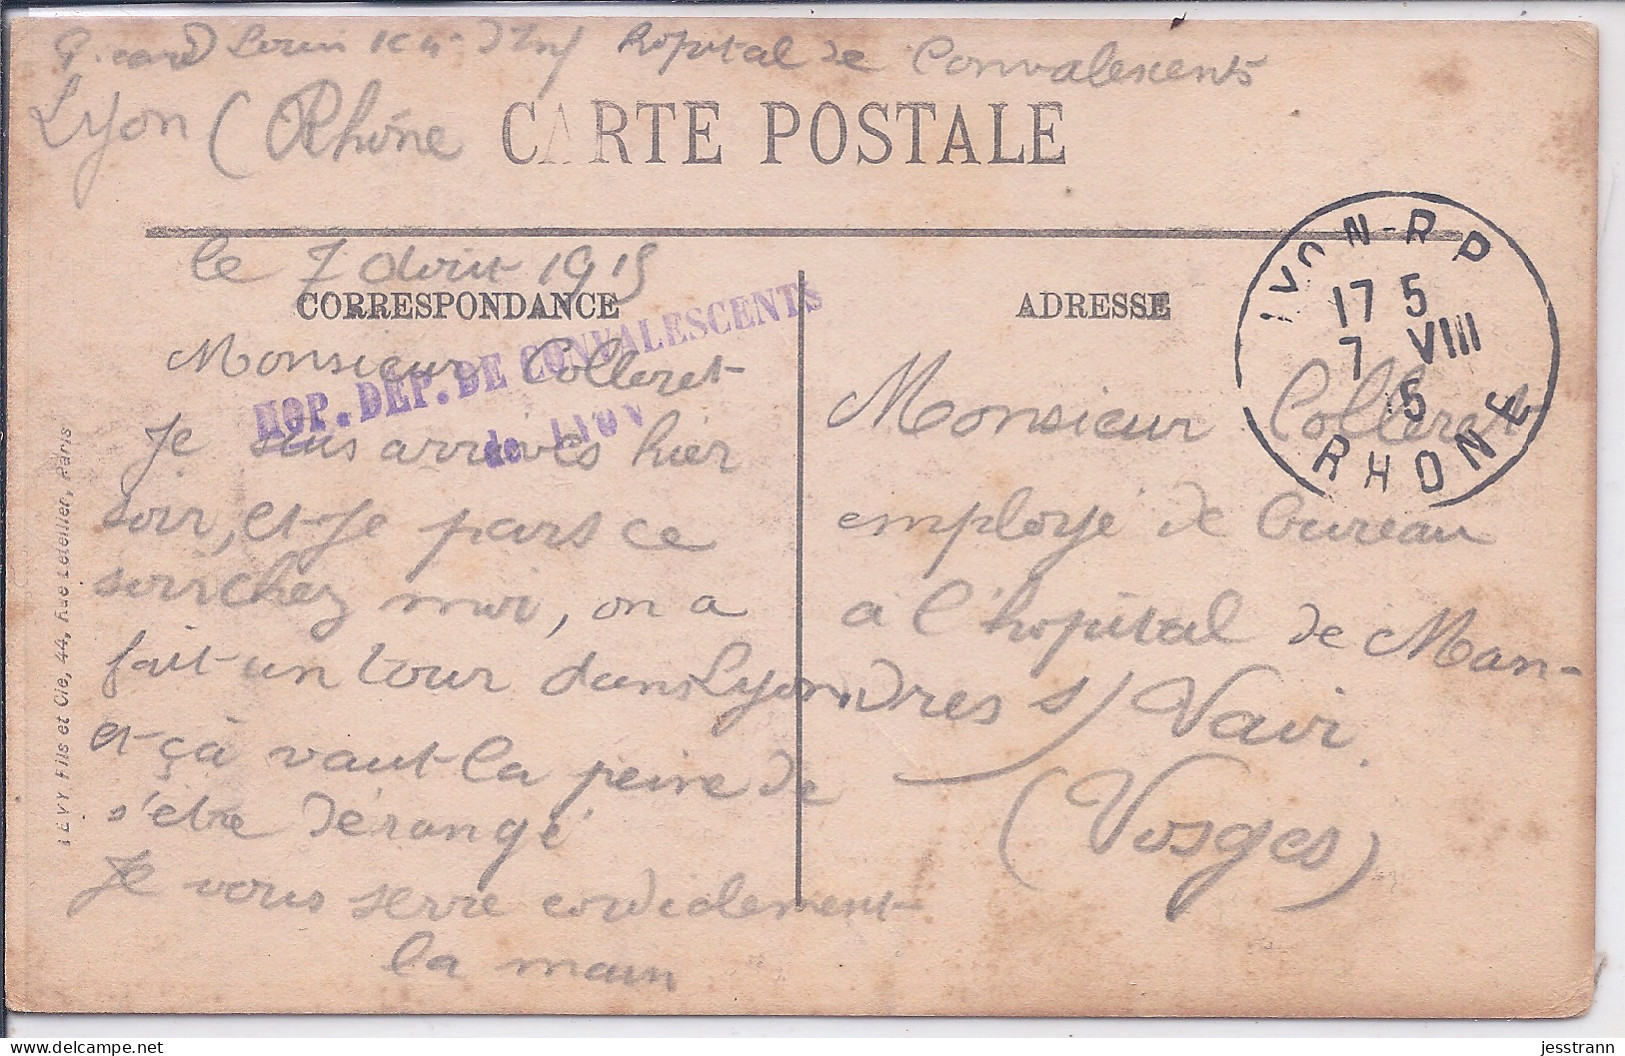 Louis hopital de Convalescents
Lyon (Rhône
CARTE POSTALE
le 7 Aout 1915
CORRESPONDANCE
ADRESSE
HOP. DÉP. DE CONVALESCENTS
de LYON
LYON-R P
17 5
7 VIII
5
RHONE
Monsieur Colleret
Je suis arrivés hier
soir, et je pars ce
soir chez moi, on a
fait un tour dans Lyon.
et çà vaut la peine de
s'être dérangé
Je vous serre cordialement
la main
Monsieur Colleret
employé de bureau
a l'hopital de Man-
dres s/ Vair
(Vosges)
LEVY Fils et Cie, 44, Rue Letellier, Paris
jesstrann